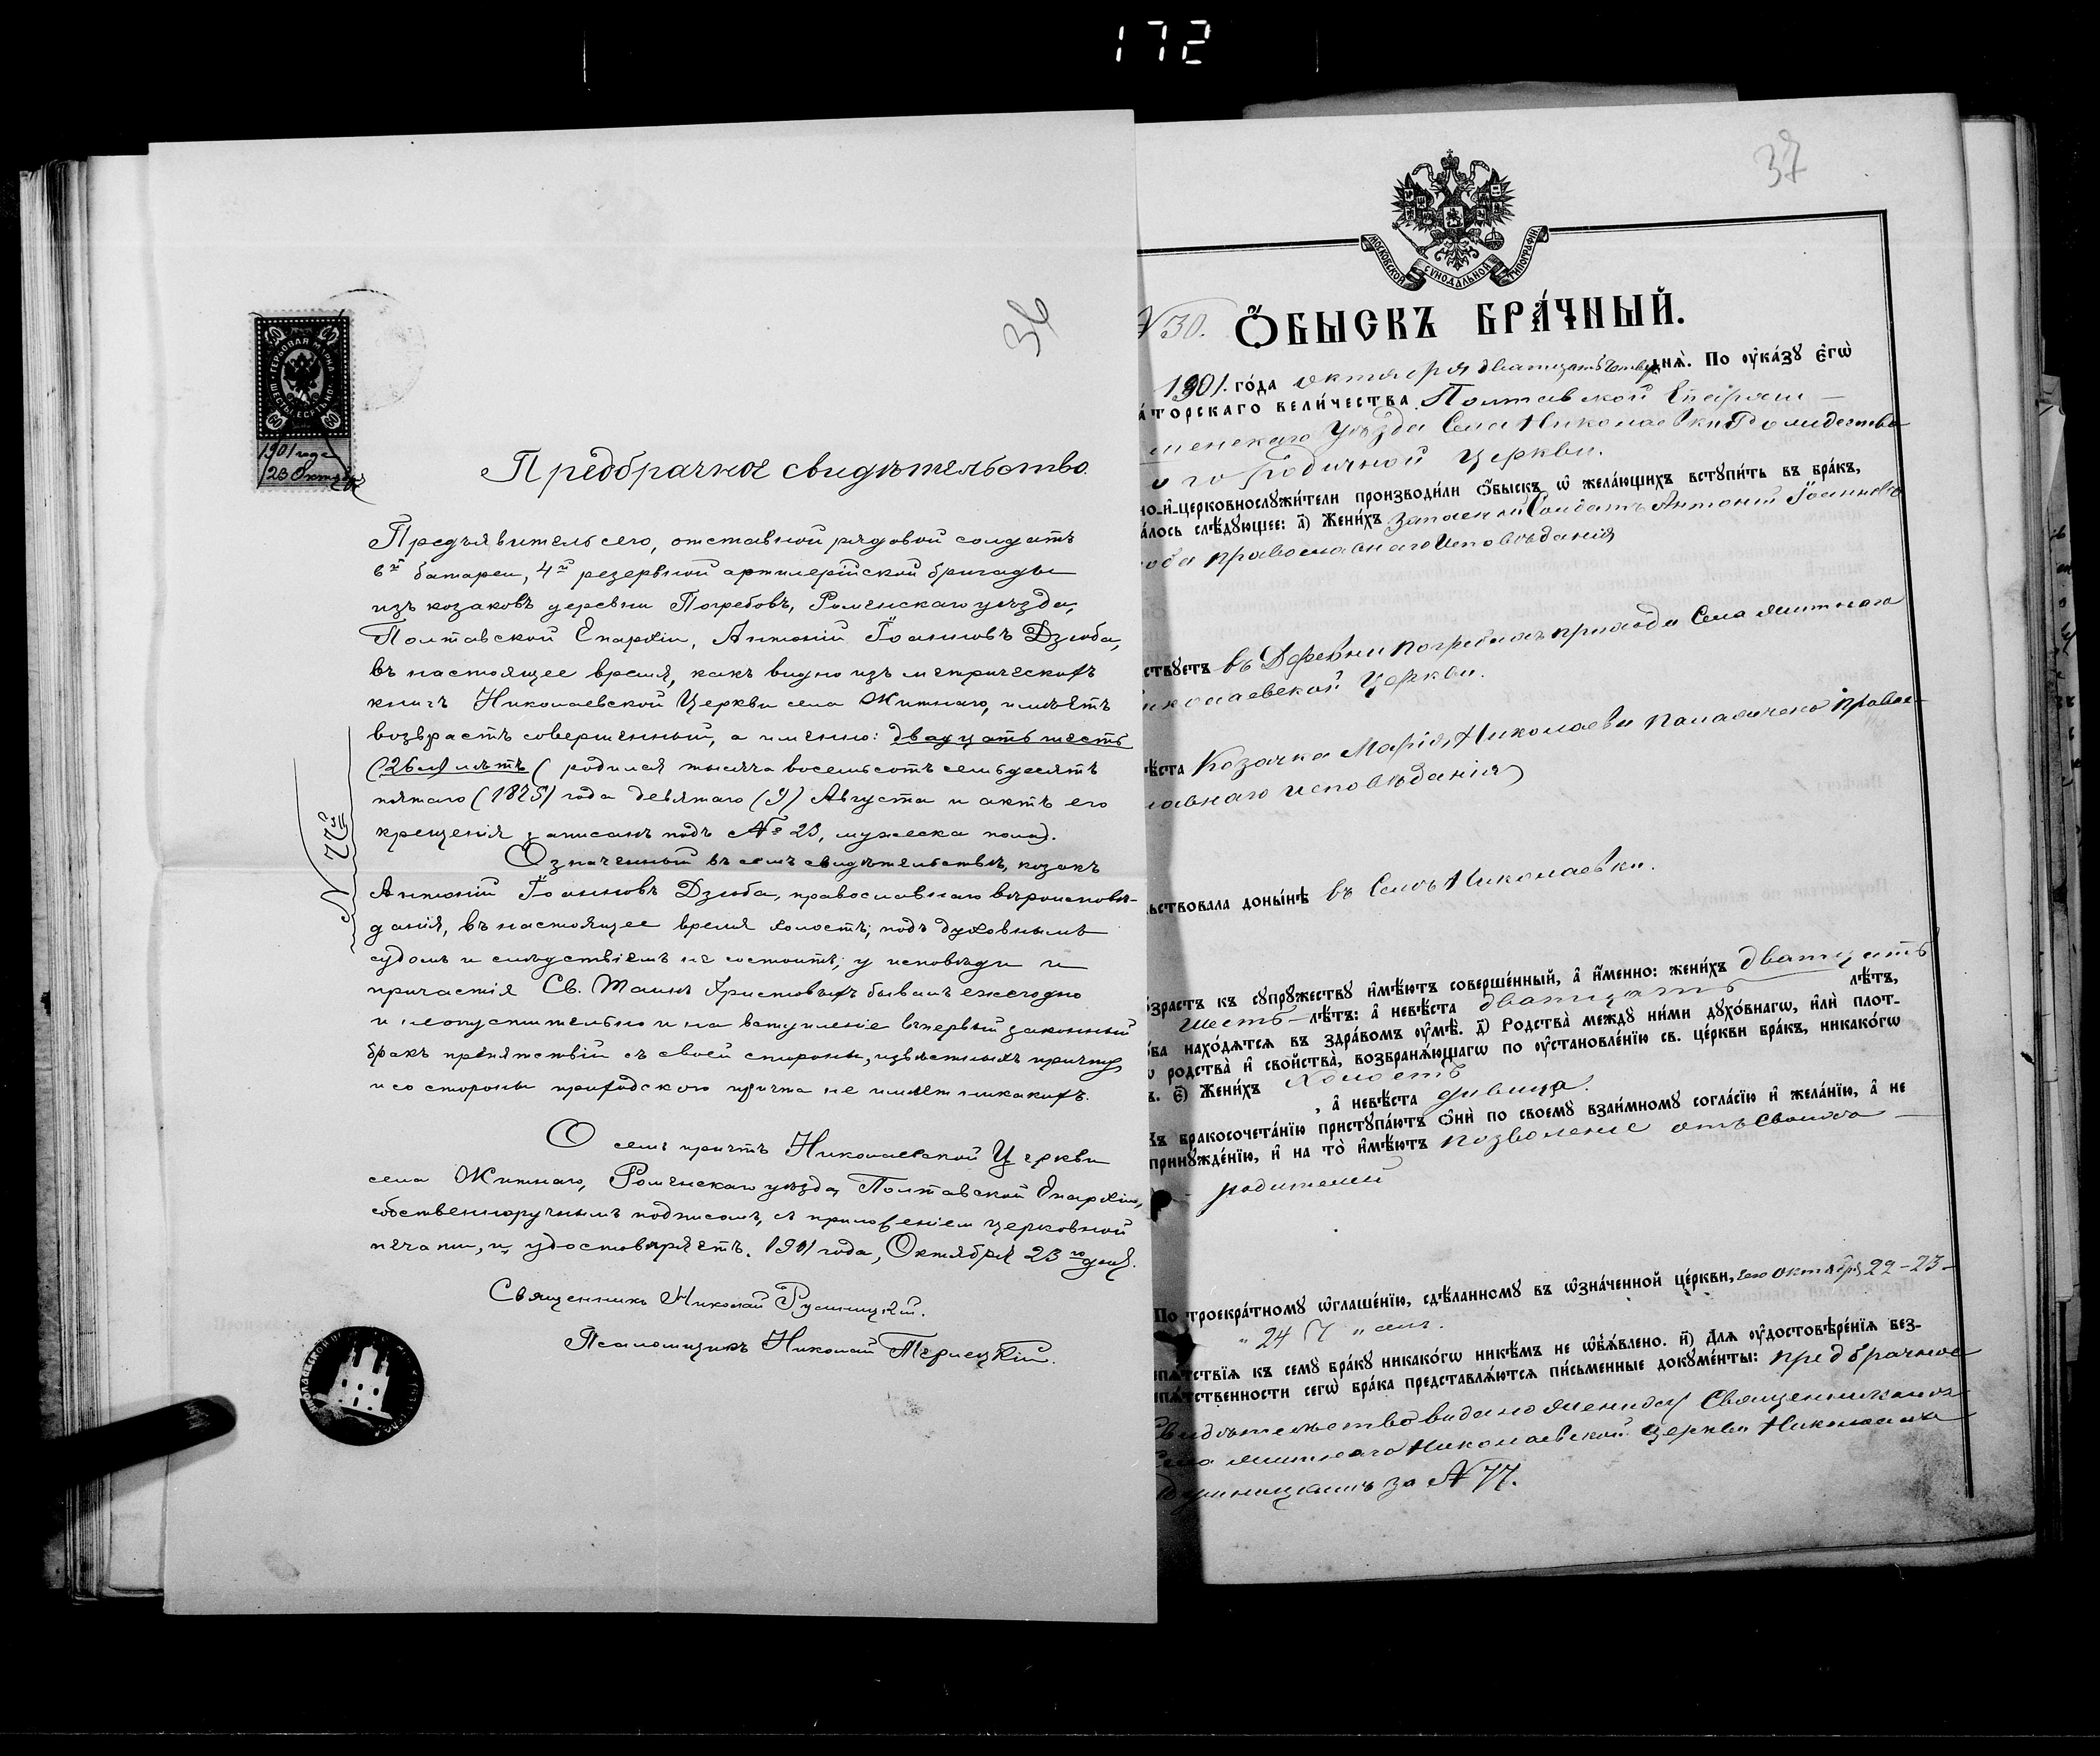 172
36
ГЕРБОВАЯ МАРКА
ШЕСТЬДЕСЯТЪ КОП.
60 60
60 60
1901 года
23 Октября
Предбрачное свидѣтельство.
Предъявитель сего, отставной рядовой солдатъ
6й батареи, 4й резервной артилерійской бригады
изъ козаковъ деревни Погребовъ, Роменскаго уѣзда,
Полтавской Епархіи, Антоній Іоанновъ Дзюба,
въ настоящее время, какъ видно изъ метрическихъ
книгъ Николаевской Церкви села Житнаго, имѣетъ
возврастъ совершенный, а именно: двадцать шесть
(26) лѣтъ (родился тысяча восемьсотъ семьдесятъ
пятаго (1875) года девятаго (9) Августа и актъ его
крещенія записанъ подъ № 23, мужеска пола).
Означенный въ семъ свидѣтельствѣ, козакъ
Антоній Іоанновъ Дзюба, православнаго вѣроисповѣ-
данія, въ настоящее время холостъ; подъ духовнымъ
судомъ и слѣдствіемъ не состоитъ; у исповѣди и
причастія Св. Таинъ Христовыхъ бывалъ ежегодно
и неопустительно и на вступленіе въ первый законный
бракъ препятствій съ своей стороны, извѣстныхъ причту
и со стороны приходского причта не имѣетъ никакихъ.
О семъ причтъ Николаевской Церкви
села Житнаго, Роменскаго уѣзда, Полтавской Епархіи,
собственноручнымъ подписомъ, съ приложеніем церковной
печати, и удостовѣряетъ. 1901 года, Октября 23го дня.
Священникъ Николай
Псаломщикъ Николай
N 77й
37
МОСКОВСКОЙ СѴНОДАЛЬНОЙ ТИПОГРАФІИ
N 30.
Ѻ҆БЫСКЪ БРА́ЧНЫЙ.
1901. го́да октября двадцать четвер дня̀. По ᲂу҆ка́зꙋ є҆гѡ̀
а́торскаго вели́чества Полтавской Епархіи
менскаго уѣзда Села Николаевки Рождество
ого родичной церкви.
но-и҆-церковнослꙋжи́тели производи́ли ѻ҆́быскъ ѡ҆ жела́ющихъ встꙋпи́ть въ бра́къ,
а́лось слѣ́дꙋющее: а҃) Жени́хъ запасный Солдатъ Антоній Іоанновъ
юба православнаго Исповѣданія
ствꙋетъ въ Деревни Погребахъ прихода Села Житнаго
николаевской церкви.
ѣ́ста Козачка Марія Николаева православ-
лавнаго исповѣданія
льствовала доны́нѣ въ Селѣ Николаевки.
о́зрастъ къ сꙋпрꙋ́жествꙋ и҆мѣ́ютъ соверше́нный, а҆ и҆́менно: жени́хъ дватцать
шесть лѣ́тъ: а҆ невѣ́ста дватцать лѣ́тъ,
о́ба нахо́дѧтсѧ въ здра́вомъ ᲂу҆мѣ̀. д҃) Родства̀ междꙋ̀ ни́ми дꙋхо́внагѡ, и҆лѝ плот-
ѡ родства̀ и҆ сво́йства̀, возбранѧ́ющагѡ по ᲂу҆становле́нїю св. це́ркви бра́къ, никако́гѡ
ъ. є҃) Жени́хъ Холостъ
, а҆ невѣ́ста дивица.
Къ бракосочета́нїю пристꙋпа́ютъ ѻ҆нѝ по своемꙋ̀ взаи́мномꙋ согла́сїю и҆ жела́нїю, а҆ не
принꙋжде́нїю, и҆ на то̀ и҆мѣ́ютъ позволеніе отъ Своихъ
родителей
По троекра́тномꙋ ѡ҆глаше́нїю, сдѣ́ланномꙋ въ ѡ҆зна́ченной це́ркви, сего октября 22–23–
" 24 " числ.
епѧ́тствїѧ къ семꙋ̀ бра́кꙋ никако́гѡ никѣ́мъ не ѡ҆б̾ѧ́влено. и҃) Длѧ ᲂу҆достовѣ́ренїѧ без-
епѧ́тственности сегѡ̀ бра́ка представлѧ́ютсѧ пи́сьменные докꙋме́нты: предбрачное
Свидѣтельство видано жениху Священникомъ
Села Житнаго Николаевской церкви Николаемъ
за N 77.